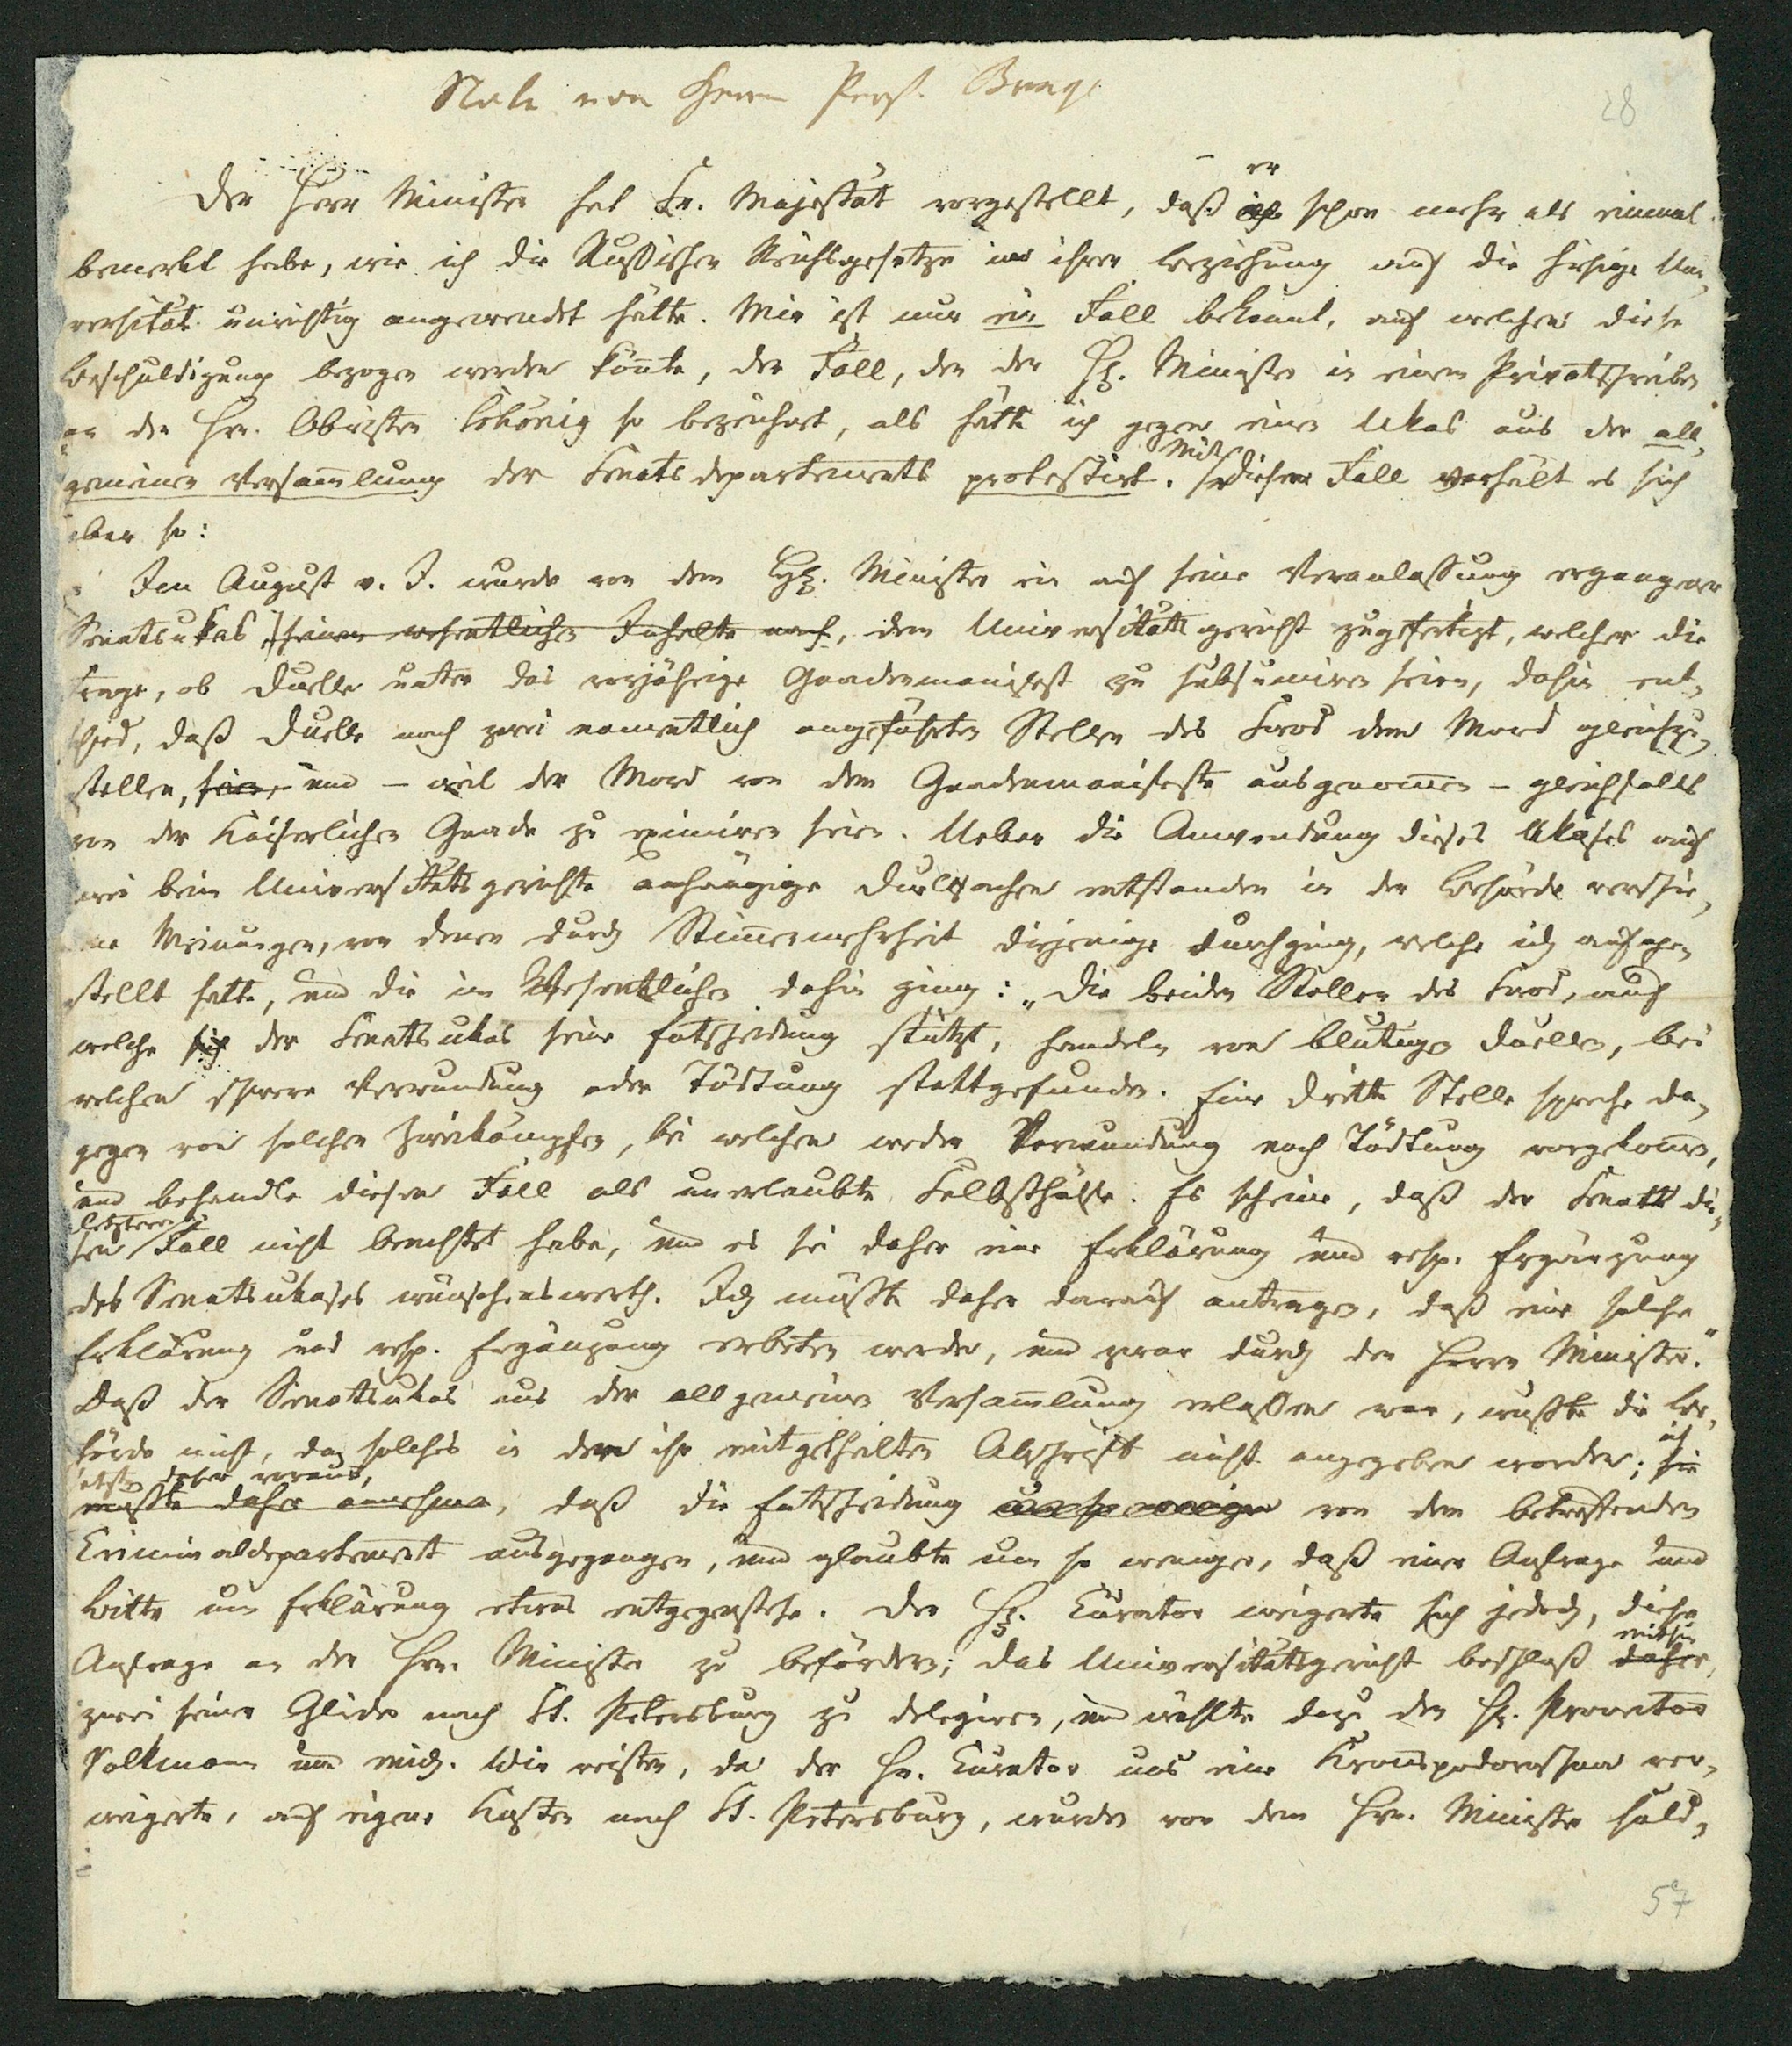 Note von Herrn Prof. Bunge
28
Der Herr Minister hat Sr. Majestät vorgestellt, daß er schon mehr als einmal
bemerkt habe, wie ich die Russischen Reichsgesetze in ihrer Beziehung auf die hiesige Uni-
versität unrichtig angewendet hätte. Mir ist nur ein Fall bekannt, auf welchen diese
Beschuldigung bezogen werden könnte, der Fall, den der H. Minister in einem Privatschreiben
an den Hrn. Obristen so bezeichnet, als hätte ich gegen einen Ukas aus der all-
gemeinen Versammlung der Senatsdepartements protestirt. Mit diesem Fall verhält es sich
aber so:
Im August v. J. wurde von dem H. Minister ein auf seine Veranlassung ergangener
Senatsukas, seinem wesentlichen Inhalte nach, dem Universitätsgericht zugefertigt, welcher die
Frage, ob Duelle unter das vorjährige Gnadenmanifest zu subsumiren seien, dahin ent-
schied, daß Duelle nach zwei namentlich angeführten Stellen des Swod dem Mord gleichzu-
stellen, seien, und – weil der Mord von dem Gnadenmanifeste ausgenommen – gleichfalls
von der Kaiserlichen Gnade zu eximiren seien. Ueber die Anwendung dieses Ukases auf
zwei beim Universitätsgerichte anhängige Duellsachen entstanden in der Behörde verschie-
dene Meinungen, von denen durch Stimmenmehrheit diejenige durchging, welche ich aufge-
stellt hatte, und die im Wesentlichen dahin ging: „Die beiden Stellen des Swod, auf
welche sich der Senatsukas seine Entscheidung stützt, handeln von blutigen Duellen, bei
welchen schwere Verwundung oder Tödtung stattgefunden. Eine dritte Stelle spreche da-
gegen von solchen Zweikämpfen, bei welchen weder Verwundung noch Tödtung vorgekommen,
und behandle diesen Fall als unerlaubte Selbsthülfe. Es scheine, daß der Senat die-
sen letzteren Fall nicht beachtet habe, und es sei daher eine Erklärung und resp. Ergänzung
des Senatsukases wünschenswerth. Ich müßte daher darauf antragen, daß eine solche
Erklärung und resp. Ergänzung erbeten werde, und zwar durch den Herrn Minister."
Daß der Senatsukas aus der allgemeinen Versammlung erlassen war, wußte die Be-
hörde nicht, da solches in der ihr mitgetheilten Abschrift nicht angegeben worden; ich sie
setzte daher voraus, mußte daher annehmen, daß die Entscheidung von dem betreffenden
Criminaldepartement ausgegangen, und glaubte um so weniger, daß einer Anfrage und
Bitte um Erklärung etwas entgegenstehe. Der H. Curator weigerte sich jedoch, diese
Anfrage an den Hrn. Minister zu befördern; das Universitätsgericht beschloß mithin daher,
zwei seiner Glieder nach St. Petersburg zu delegiren, und wählte dazu den H. Prorector
Volkmann und mich. Wir reisten, da der Hr. Curator uns eine Kronspodoroschna ver-
weigerte, auf eigene Kosten nach St. Petersburg, wurden von dem Hrn. Minister huld-
57